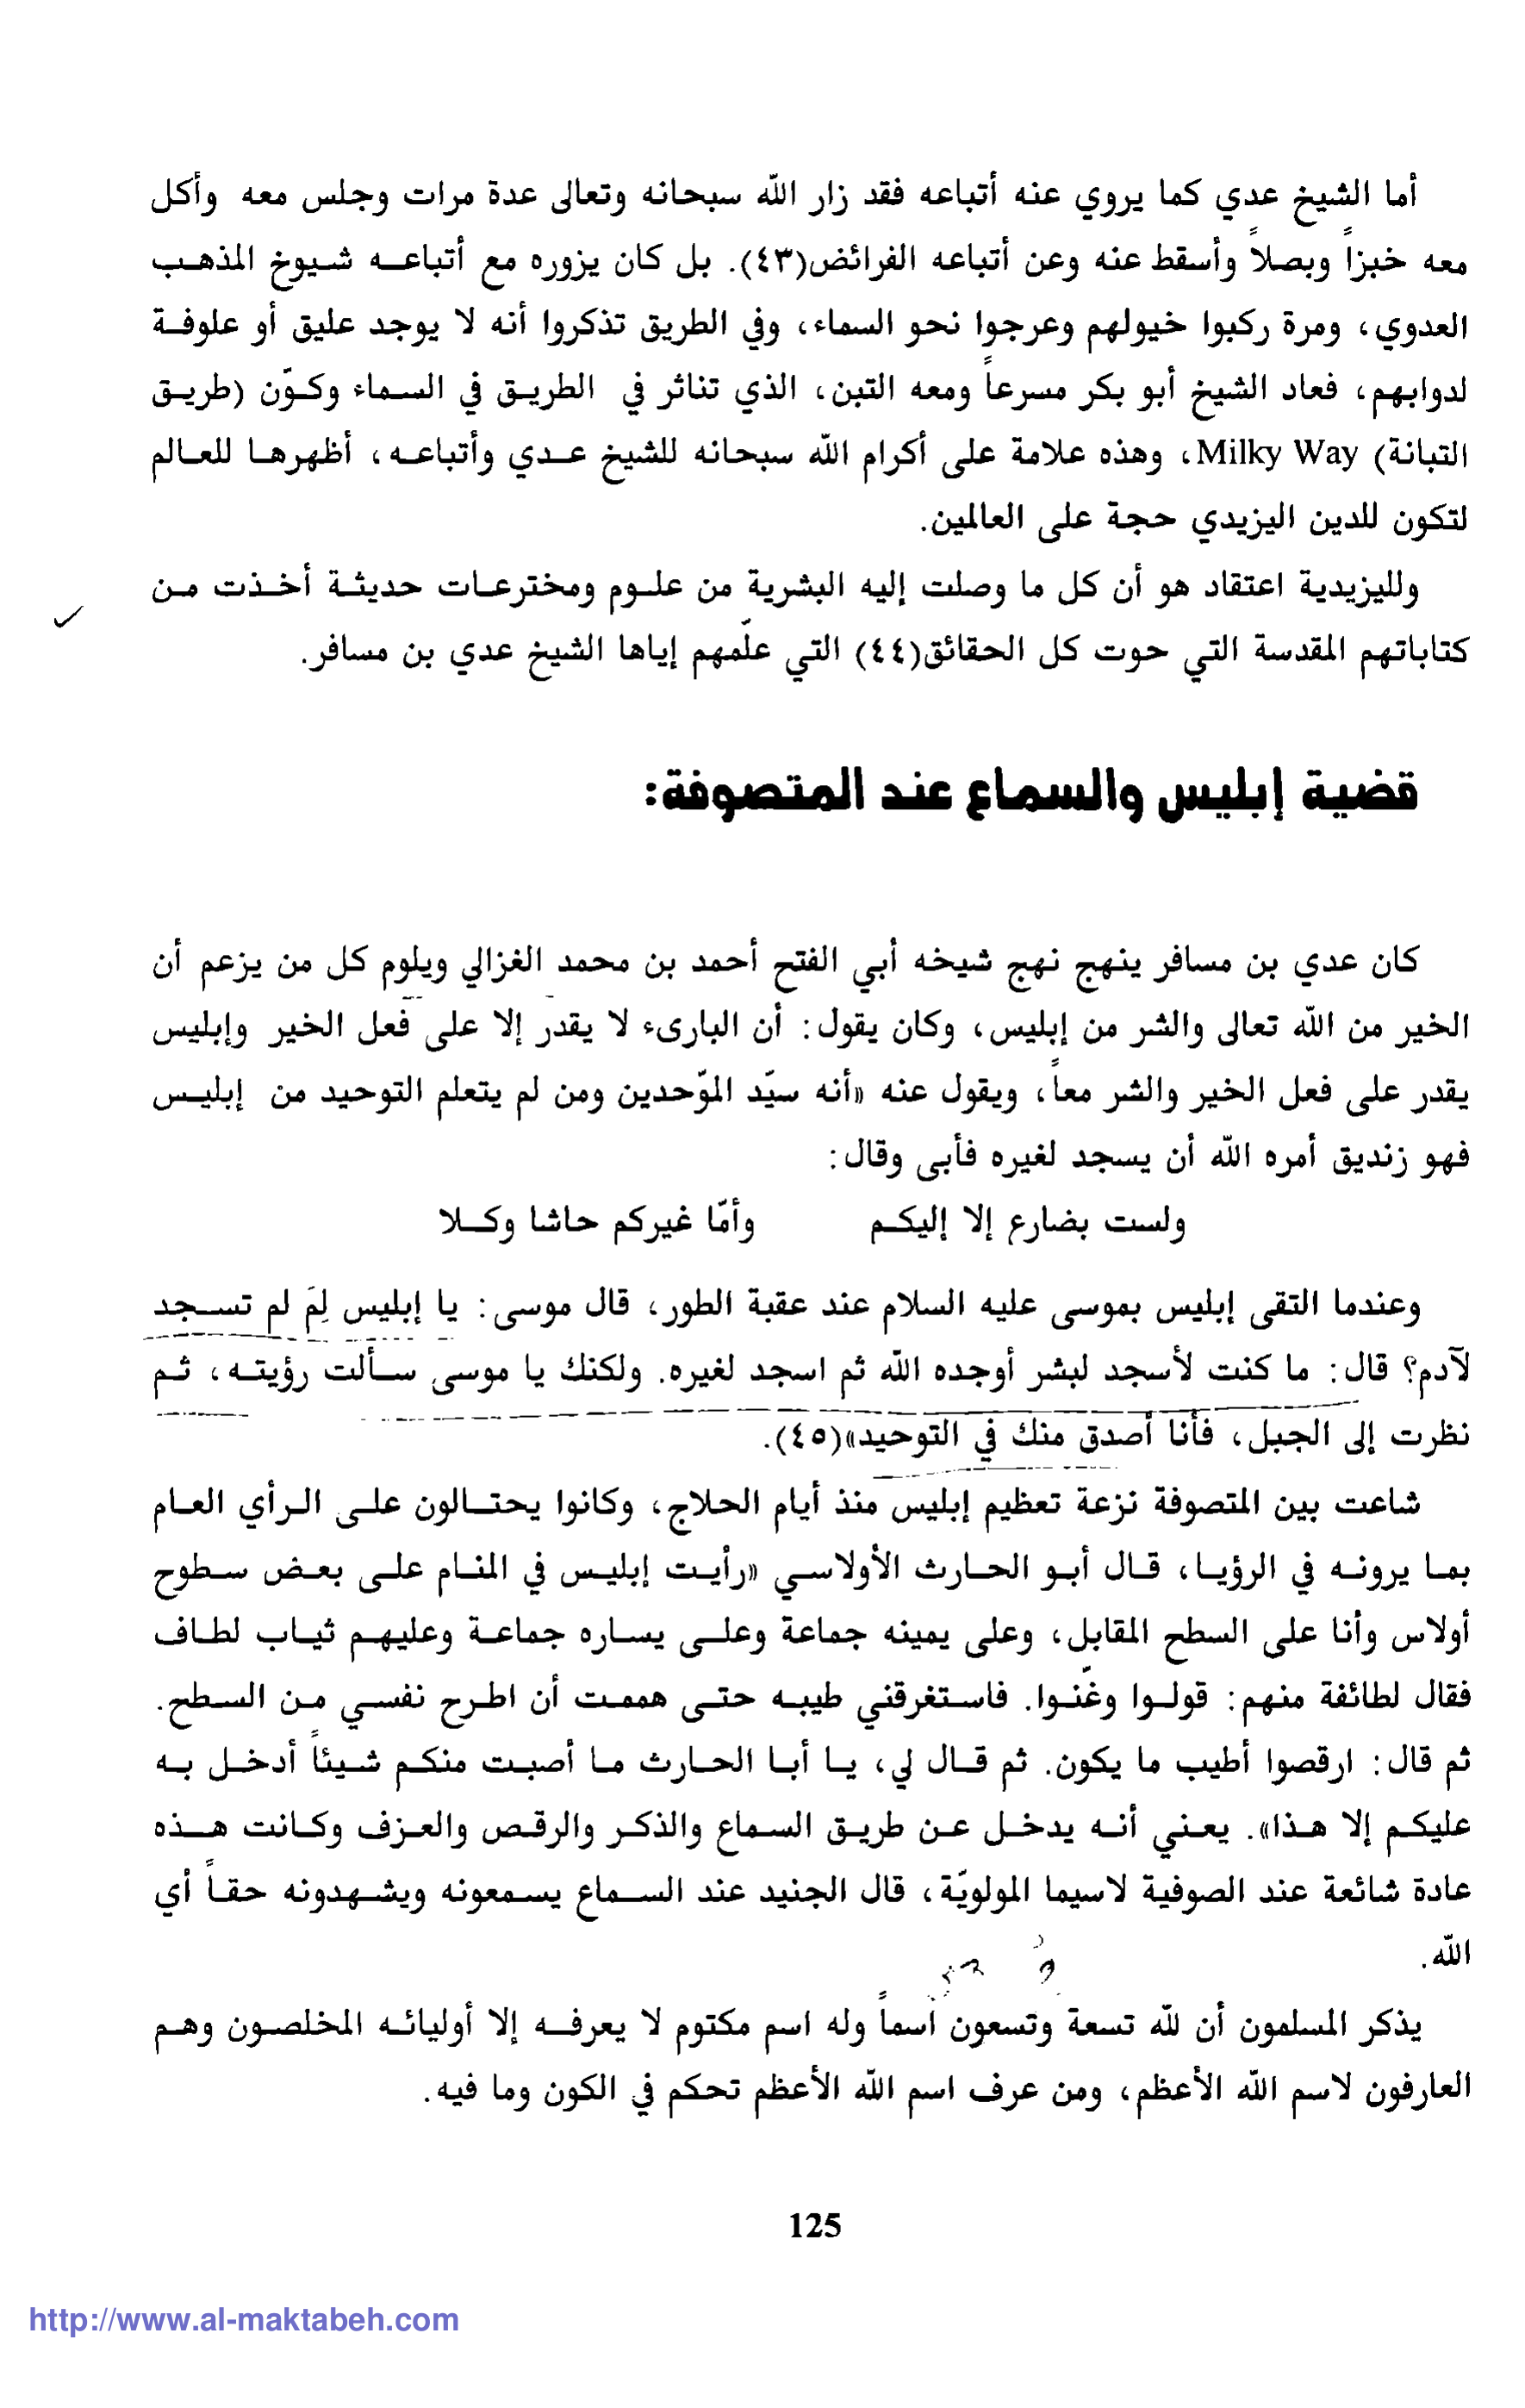 أما الشيخ عدي كما يروي عنه أتباعه فقد زار الله سبحانه وتعالى عدة مرات وجلس معه وأكل
معه خبزاً وبصلاً وأسقط عنه وعن أتباعه الفرائض(٤٣). بل كان يزوره مع أتباعه شيوخ المذهب
العدوي، ومرة ركبوا خيولهم وعرجوا نحو السماء، وفي الطريق تذكروا أنه لا يوجد عليق أو علوفة
لدوابهم، فعاد الشيخ أبو بكر مسرعاً ومعه التبن، الذي تناثر في الطريق في السماء وكوّن (طريق
التبانة) Milky Way، وهذه علامة على أكرام الله سبحانه للشيخ عدي وأتباعه، أظهرها للعالم
لتكون للدين اليزيدي حجة على العالمين.
ولليزيدية اعتقاد هو أن كل ما وصلت إليه البشرية من علوم ومخترعات حديثة أخذت من
كتاباتهم المقدسة التي حوت كل الحقائق(٤٤) التي علّمهم إياها الشيخ عدي بن مسافر.
قضية إبليس والسماع عند المتصوفة:
كان عدي بن مسافر ينهج نهج شيخه أبي الفتح أحمد بن محمد الغزالي ويلوم كل من يزعم أن
الخير من الله تعالى والشر من إبليس، وكان يقول: أن البارىء لا يقدر إلا على فعل الخير وإبليس
يقدر على فعل الخير والشر معاً، ويقول عنه «أنه سيّد الموّحدين ومن لم يتعلم التوحيد من إبليس
فهو زنديق أمره الله أن يسجد لغيره فأبى وقال:
ولست بضارع إلا إليكم وأمّا غيركم حاشا وكلا
وعندما التقى إبليس بموسى عليه السلام عند عقبة الطور، قال موسى: يا إبليس لِمَ لم تسجد
لآدم؟ قال: ما كنت لأسجد لبشر أوجده الله ثم اسجد لغيره. ولكنك يا موسى سألت رؤيته، ثم
نظرت إلى الجبل، فأنا أصدق منك في التوحيد»(٤٥).
شاعت بين المتصوفة نزعة تعظيم إبليس منذ أيام الحلاج، وكانوا يحتالون على الرأي العام
بما يرونه في الرؤيا، قال أبو الحارث الأولاسي «رأيت إبليس في المنام على بعض سطوح
أولاس وأنا على السطح المقابل، وعلى يمينه جماعة وعلى يساره جماعة وعليهم ثياب لطاف
فقال لطائفة منهم: قولوا وغنّوا. فاستغرقني طيبه حتى هممت أن اطرح نفسي من السطح.
ثم قال: ارقصوا أطيب ما يكون. ثم قال لي، يا أبا الحارث ما أصبت منكم شيئاً أدخل به
عليكم إلا هذا». يعني أنه يدخل عن طريق السماع والذكر والرقص والعزف وكانت هذه
عادة شائعة عند الصوفية لاسيما المولويّة، قال الجنيد عند السماع يسمعونه ويشهدونه حقاً أي
الله.
يذكر المسلمون أن لله تسعة وتسعون اسماً وله اسم مكتوم لا يعرفه إلا أوليائه المخلصون وهم
العارفون لاسم الله الأعظم، ومن عرف اسم الله الأعظم تحكم في الكون وما فيه.
125
http://www.al-maktabeh.com